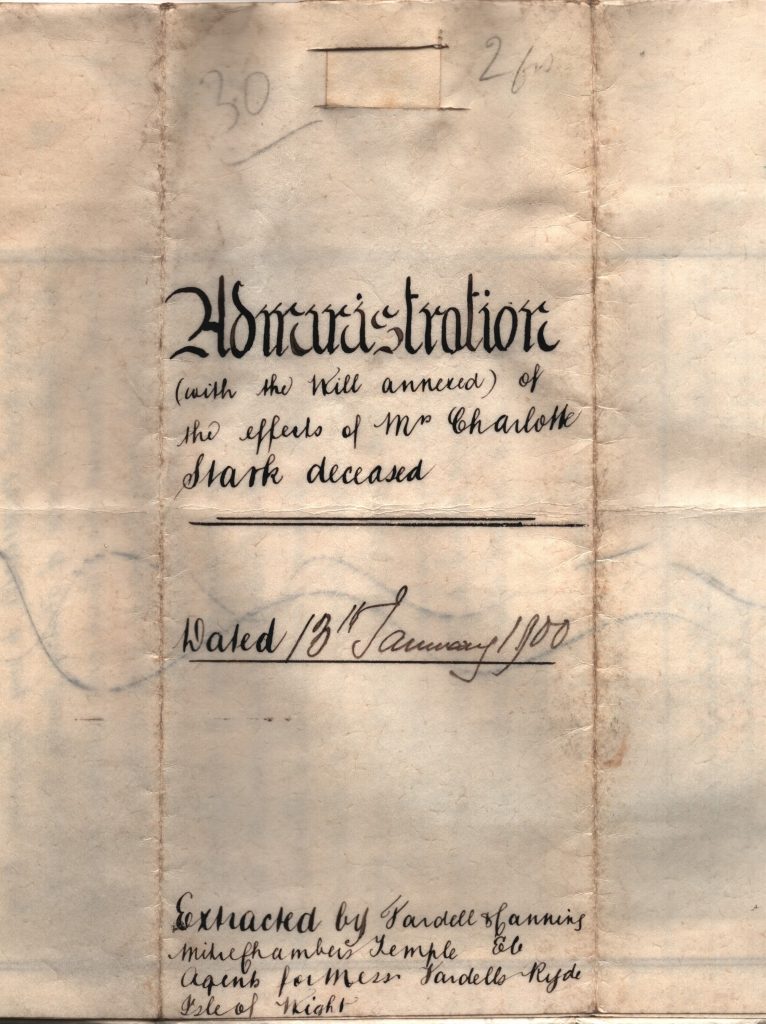 30
2
Administration
(with the Will annexed) of
the effects of Mrs Charlotte
Stark deceased
Dated 13th January 1900
Extracted by Vardell & Canning
Mitre Chambers Temple EC
Agents for Messrs Vardells Ryde
Isle of Wight